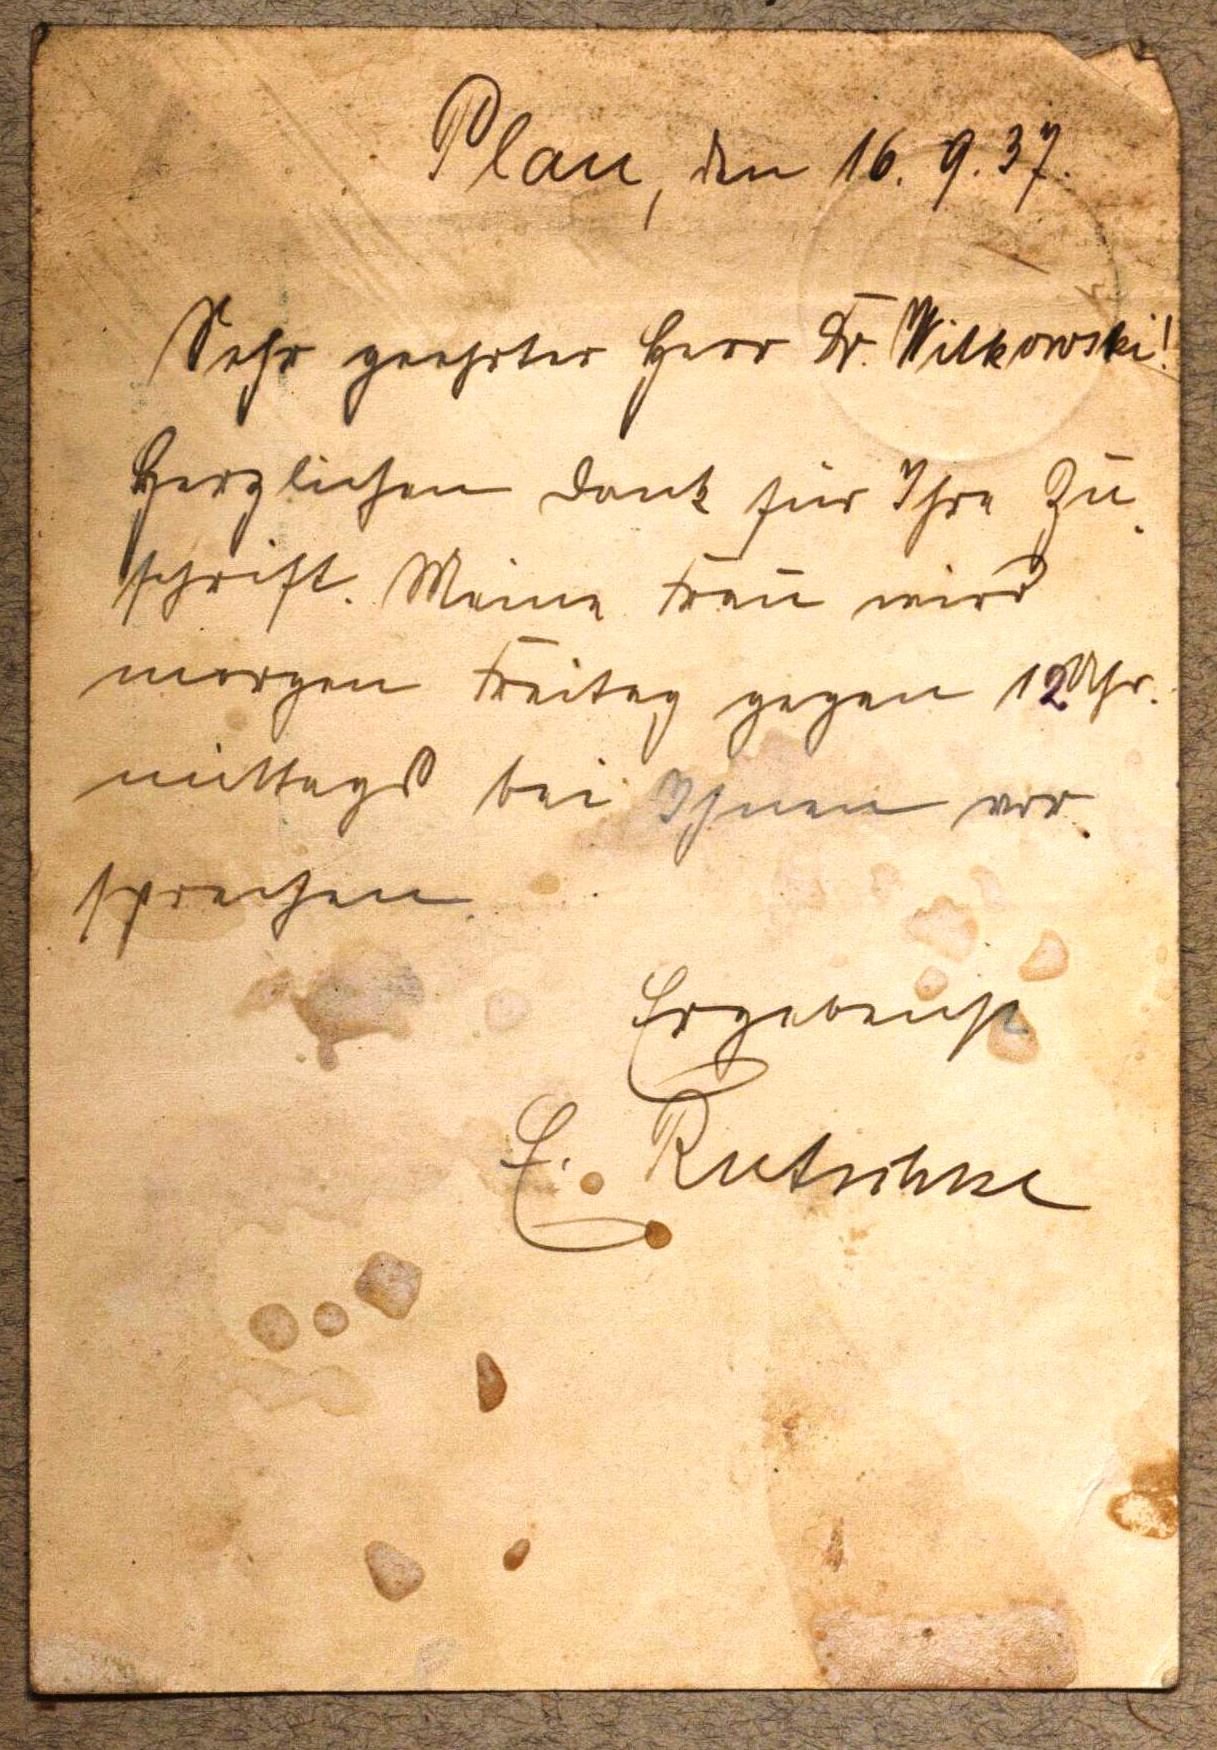 Plau, den 16. 9. 37.
Sehr geehrter Herr Dr. Wilkowski!
Herzlichen Dank für Ihre Zu-
schrift. Meine Frau wird
morgen Freitag gegen 12 Uhr.
mittags bei Ihnen vor-
sprechen.
Ergebenst
E. Rutschke